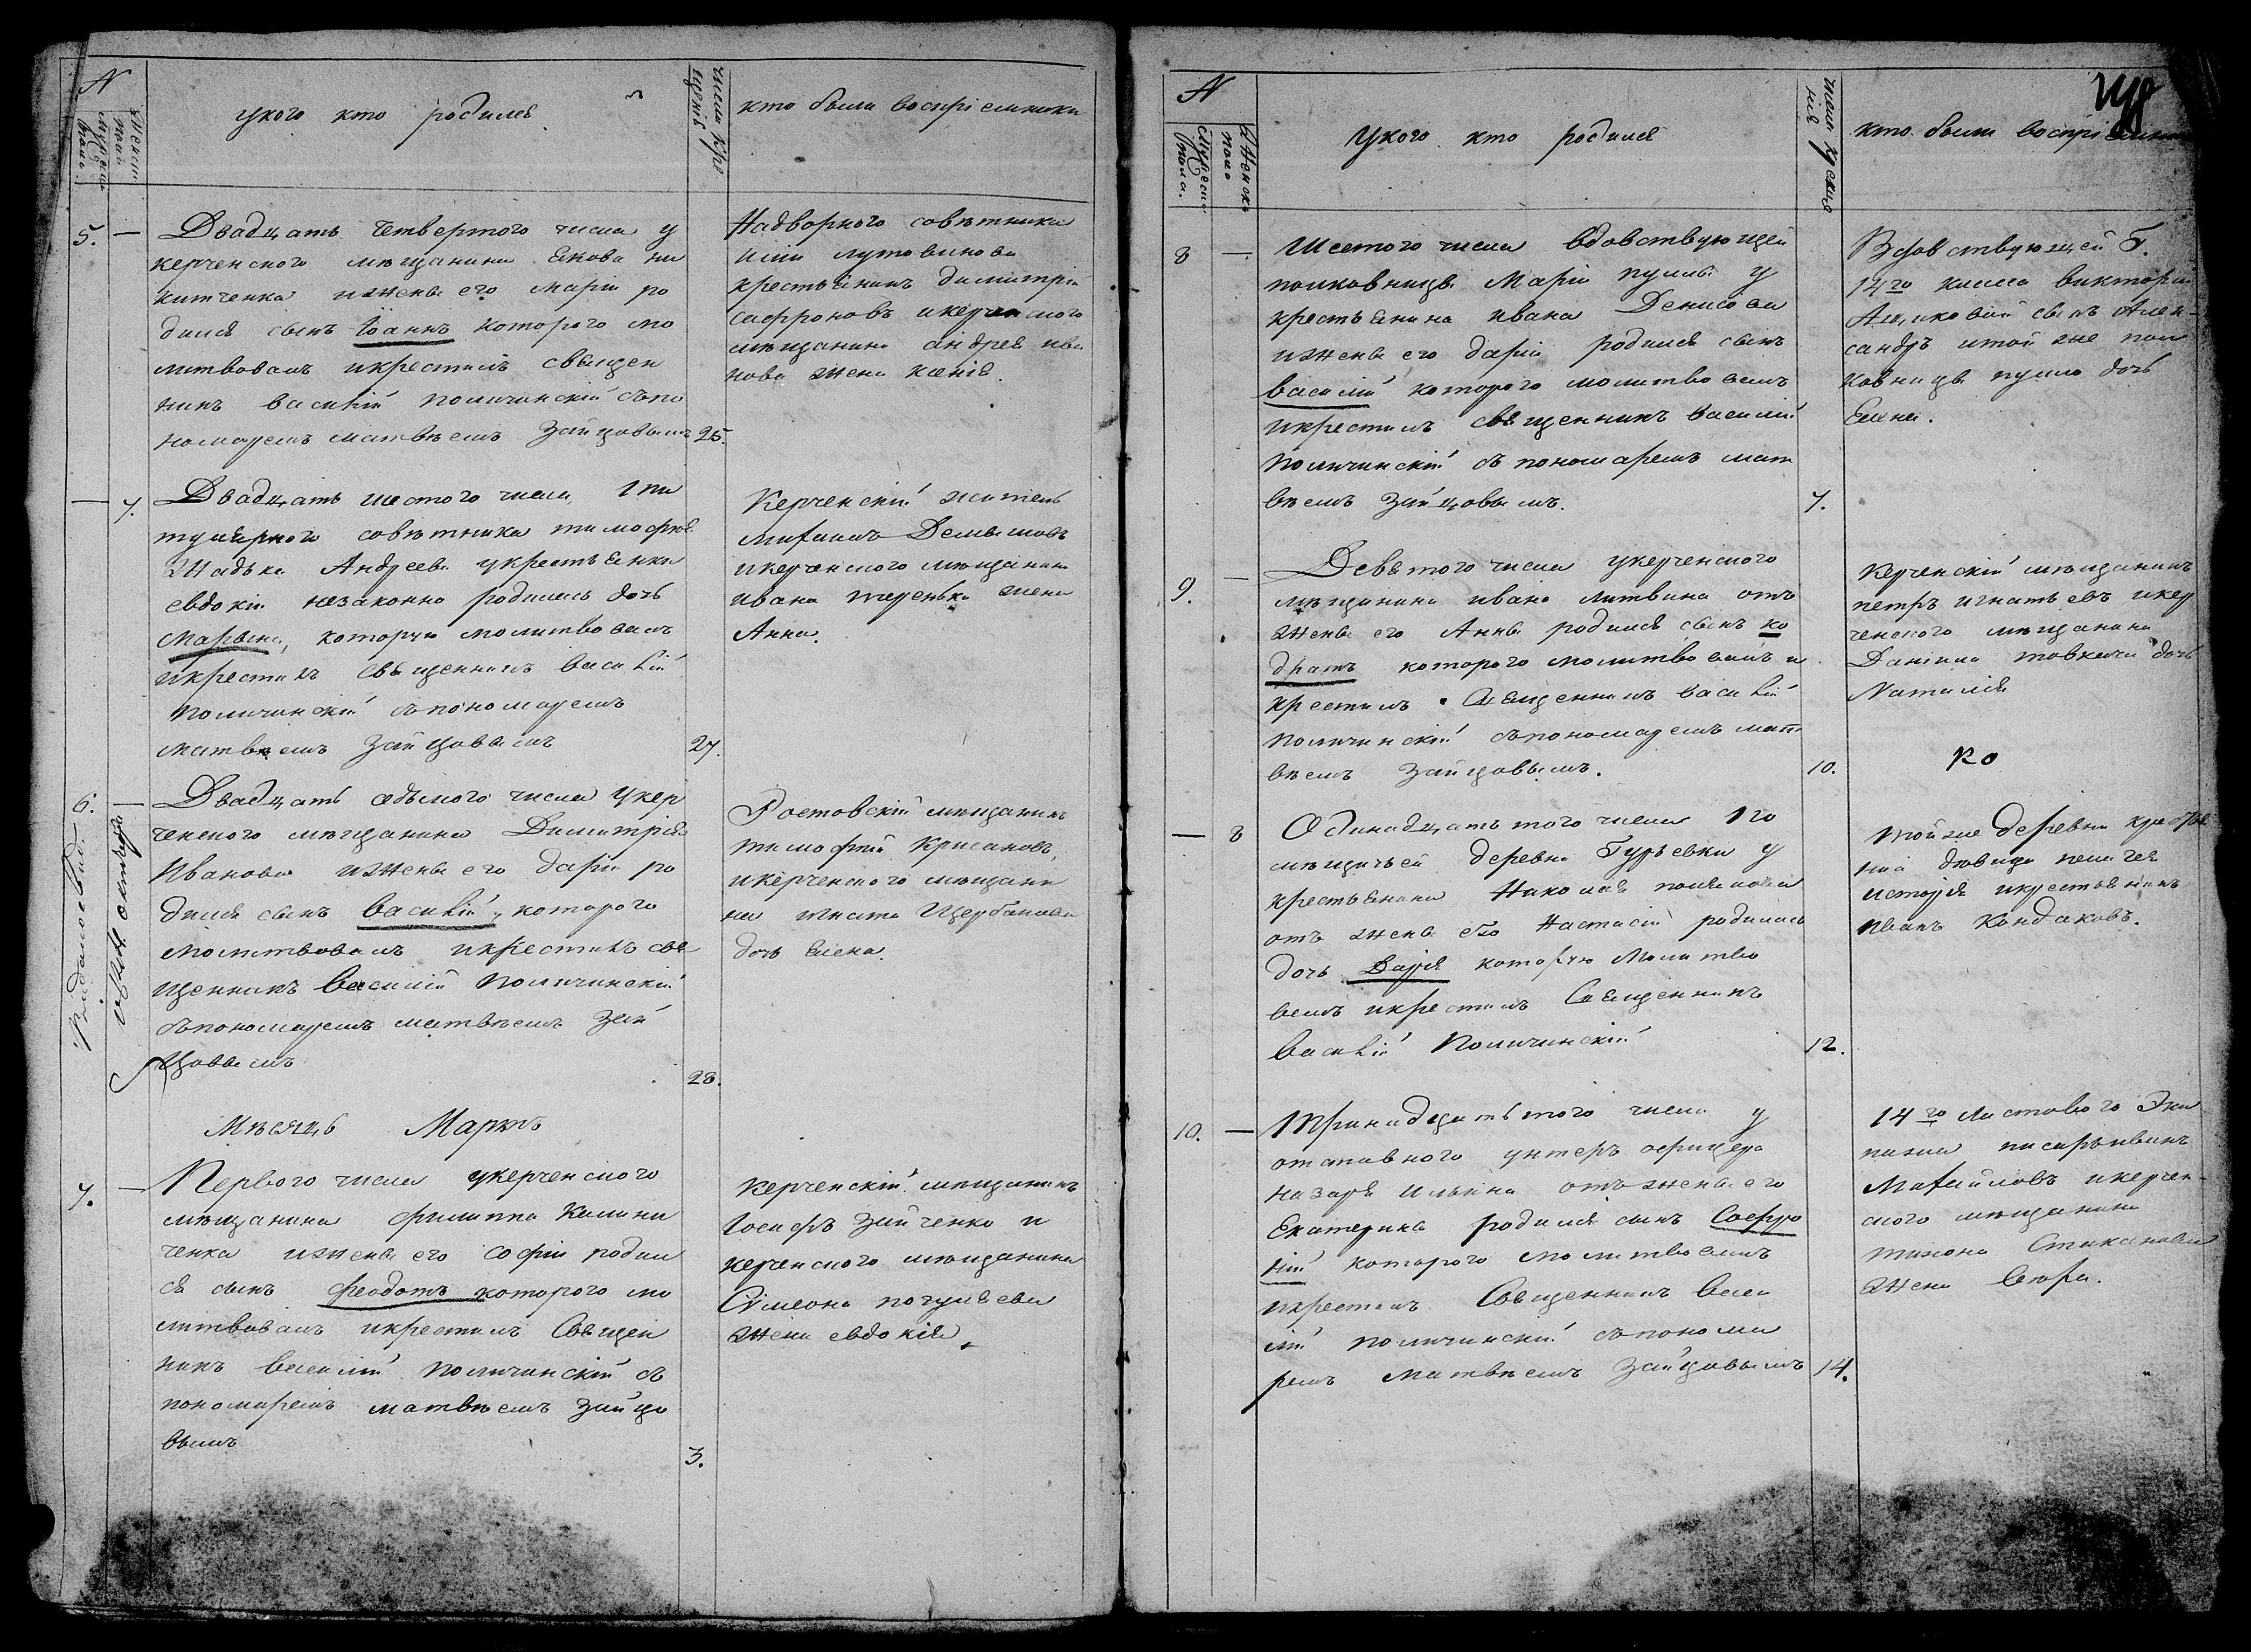 N
Мужеска пола.
Женска пола
у кого кто родился
числа кре
щенія
кто были воспріемники
5. —
Двадцать четвертого числа у
керченского мѣщанина Якова Ни
китченка и жены его Маріи ро
дился сынъ Іоаннъ которого мо
литвовалъ и крестилъ священ
никъ Василій Поличинскій съ по
номаремъ Матвѣемъ Зайцовымъ 25.
Надворного совѣтника
крестьянинъ Димитрій
Сафроновъ и керченского
мѣщанина Андрея Ива
нова жена Ксенія.
— 7.
Двадцать шестого числа, у ти
тулярного совѣтника Тимофѣя
Андреева у крестьянки
Евдокіи незаконно родилась дочь
Марьяна, которую молитвовалъ
и крестилъ священникъ Василій
Поличинскій съ пономаремъ
Матвѣемъ Зайцовымъ 27.
Керченскій житель
Михаилъ Демьяновъ
и керченского мѣщанина
Ивана Теренька жена
Анна.
6. —
Двадцать седьмого числа у кер
ченского мѣщанина Димитрія
Иванова и жены его Даріи ро
дился сынъ Василій, которого
молитвовалъ и крестилъ свя
щенникъ Василій Поличинскій
съ пономаремъ Матвѣемъ Зай
цовымъ 28.
Ростовскій мѣщанинъ
Тимофей Крисановъ,
и керченского мѣщани
на Игната Щербакова
дочь Елена.
Мѣсяцъ Мартъ
7. —
Первого числа у керченского
мѣщанина Филиппа Калини
ченка и жены его Софіи родил
ся сынъ Феодотъ которого мо
литвовалъ и крестилъ Священ
никъ Василій Поличинскій съ
пономаремъ Матвѣемъ Зайцо
вымъ 3.
Керченскій мѣщанинъ
Іосифъ Зайченко и
керченского мѣщанина
Симеона
жена Евдокія,
N
Мужеска пола.
Женска пола
У кого кто родился
числа креще
нія
кто были воспріемники
8 —
Шестого числа вдовствующей
полковницы Маріи Пулло у
крестьянина Ивана Денисова
и жены его Даріи родился сынъ
Василій которого молитвовалъ
и крестилъ священникъ Василій
Поличинскій съ пономаремъ Мат
вѣемъ Зайцовымъ. 7.
Вдовствующей Г.
14го класса Викторіи
сынъ Алек-
сандръ и той же пол
ковницы Пулло дочь
Елена.
9. —
Девятого числа у керченского
мѣщанина Ивана Литвина отъ
жены его Анны родился сынъ Ко
дратъ которого молитвовалъ и
крестилъ Священникъ Василій
Поличинскій съ пономаремъ Мат
вѣемъ Зайцовымъ. 10.
Керченскій мѣщанинъ
Петръ Игнатьевъ и кер
ченского мѣщанина
Даніила Товкача дочь
Наталія
Ко
— 8
Одинадцатьтого числа
деревни Гурьевки у
крестьянина Николая Полякова
отъ жены его Настасіи родилась
дочь Дарія которую Молитво
валъ и крестилъ Священникъ
Василій Поличинскій 12.
Той же деревни
дѣвица Пелагея
и крестьянинъ
Иванъ Кондаковъ.
10. —
Тринадцатьтого числа у
отставного унтеръ офицера
Назара Ильина отъ жены его
Екатерины родился сынъ Софро
ній которого молитвовалъ
и крестилъ Священникъ Васи
лій Поличинскій съ понома
ремъ Матвѣемъ Зайцовымъ 14.
14го Ластового Эки
пажа писарь Иванъ
Михайловъ и керчен-
ского мѣщанина
Тихона Стаканова
жена